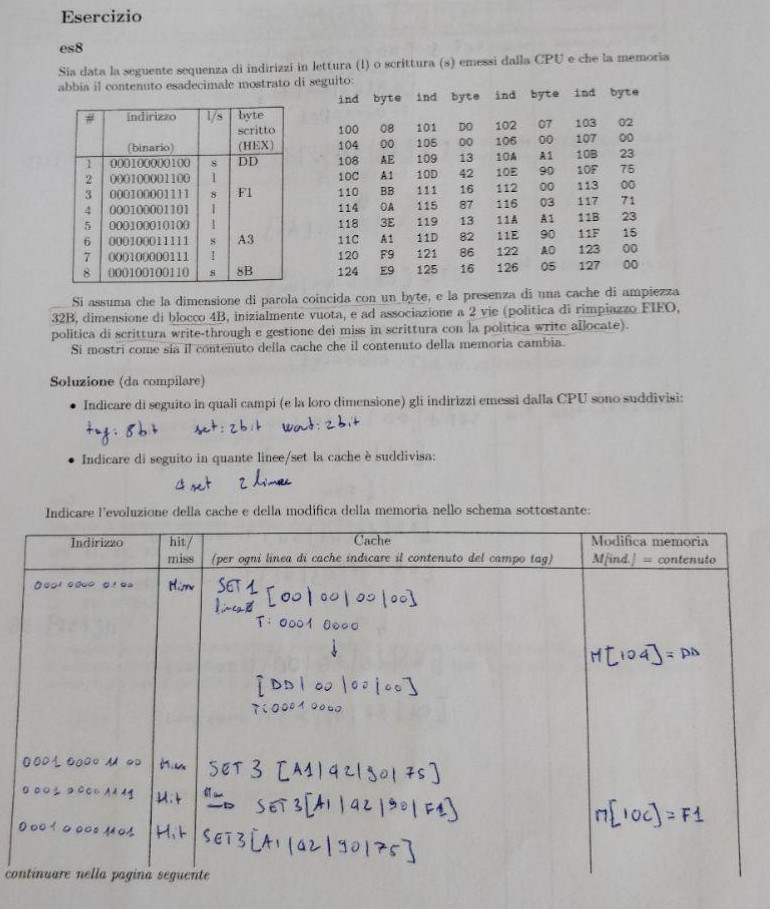 Esercizio
es8
Sia data la seguente sequenza di indirizzi in lettura (l) o scrittura (s) emessi dalla CPU e che la memoria
abbia il contenuto esadecimale mostrato di seguito:
# indirizzo (binario) l/s byte scritto (HEX)
1 000100000100 s DD
2 000100001100 l
3 000100001111 s F1
4 000100001101 l
5 000100010100 l
6 000100011111 s A3
7 000100000111 l
8 000100100110 s 8B
ind byte ind byte ind byte ind byte
100 08 101 D0 102 07 103 02
104 00 105 00 106 00 107 00
108 AE 109 13 10A A1 10B 23
10C A1 10D 42 10E 90 10F 75
110 BB 111 16 112 00 113 00
114 0A 115 87 116 03 117 71
118 3E 119 13 11A A1 11B 23
11C A1 11D 82 11E 90 11F 15
120 F9 121 86 122 A0 123 00
124 E9 125 16 126 05 127 00
Si assuma che la dimensione di parola coincida con un byte, e la presenza di una cache di ampiezza
32B, dimensione di blocco 4B, inizialmente vuota, e ad associazione a 2 vie (politica di rimpiazzo FIFO,
politica di scrittura write-through e gestione dei miss in scrittura con la politica write allocate).
Si mostri come sia il contenuto della cache che il contenuto della memoria cambia.
Soluzione (da compilare)
• Indicare di seguito in quali campi (e la loro dimensione) gli indirizzi emessi dalla CPU sono suddivisi:
tag: 8bit set: 2bit word: 2bit
• Indicare di seguito in quante linee/set la cache è suddivisa:
4 set 2 linee
Indicare l'evoluzione della cache e della modifica della memoria nello schema sottostante:
Indirizzo hit/ miss Cache (per ogni linea di cache indicare il contenuto del campo tag) Modifica memoria M[ind.] = contenuto
0001 0000 0100 Miss SET 1 [00|00|00|00]
linea0
T: 0001 0000
↓
M[104] = DD
[DD|00|00|00]
T: 0001 0000
0001 0000 11 00 Miss SET 3 [A1|42|90|75]
0001 0000 1111 Hit → SET 3[A1|42|90|F1] M[10C] = F1
0001 0000 1101 Hit SET3[A1|42|90|75]
continuare nella pagina seguente